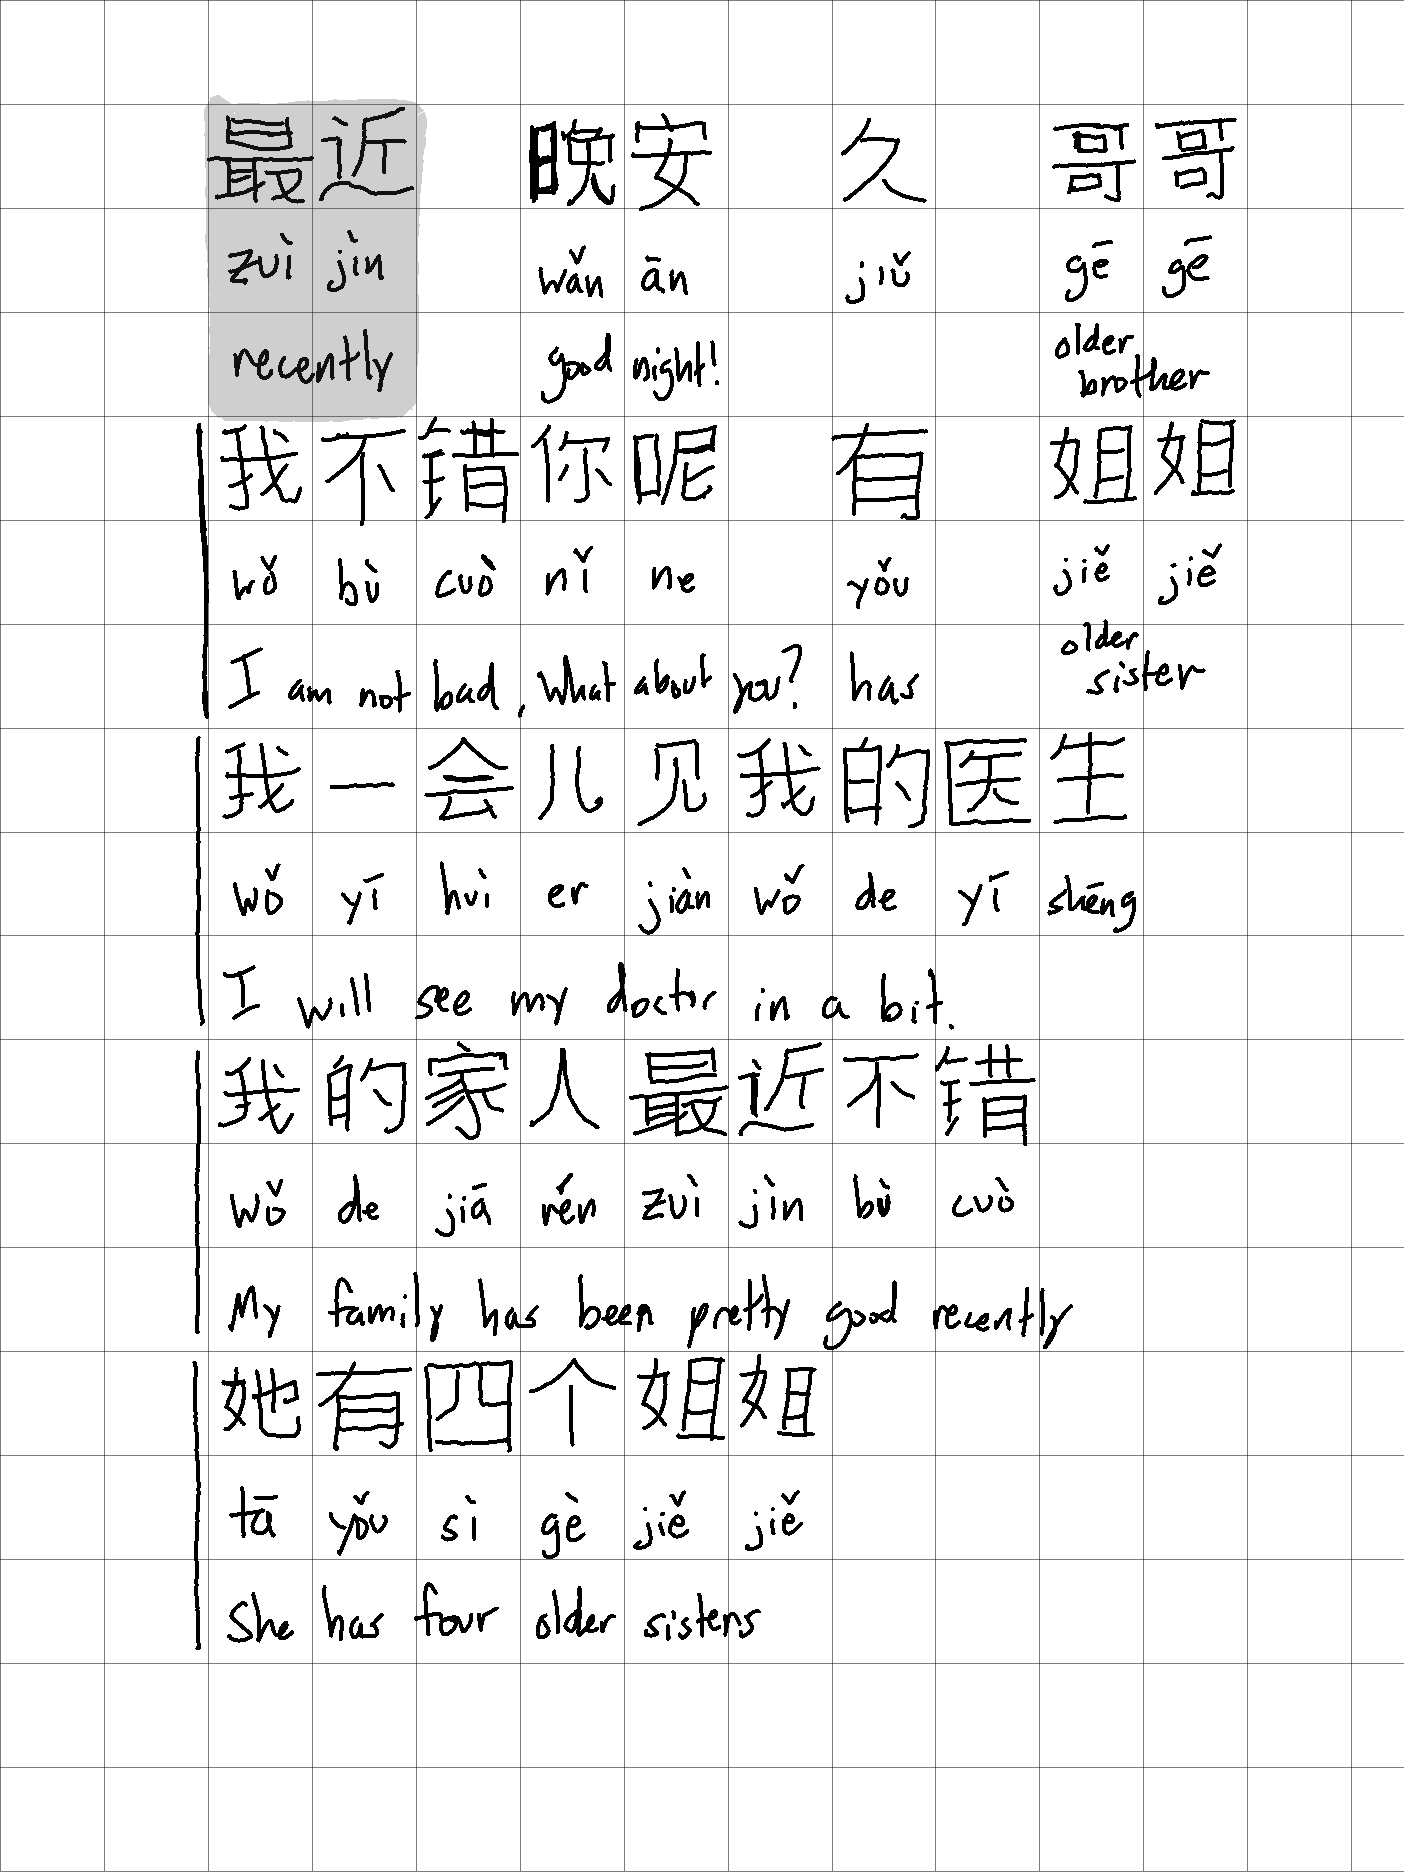 最近 晚安 久 哥哥
zuì jìn wǎn ān jiǔ gē gē
recently good night! older brother
我不错你呢 有 姐姐
wǒ bù cuò nǐ ne yǒu jiě jiě
I am not bad, What about you? has older sister
我一会儿见我的医生
wǒ yī huì er jiàn wǒ de yī shēng
I will see my doctor in a bit.
我的家人最近不错
wǒ de jiā rén zuì jìn bù cuò
My family has been pretty good recently
她有四个姐姐
tā yǒu sì gè jiě jiě
She has four older sisters